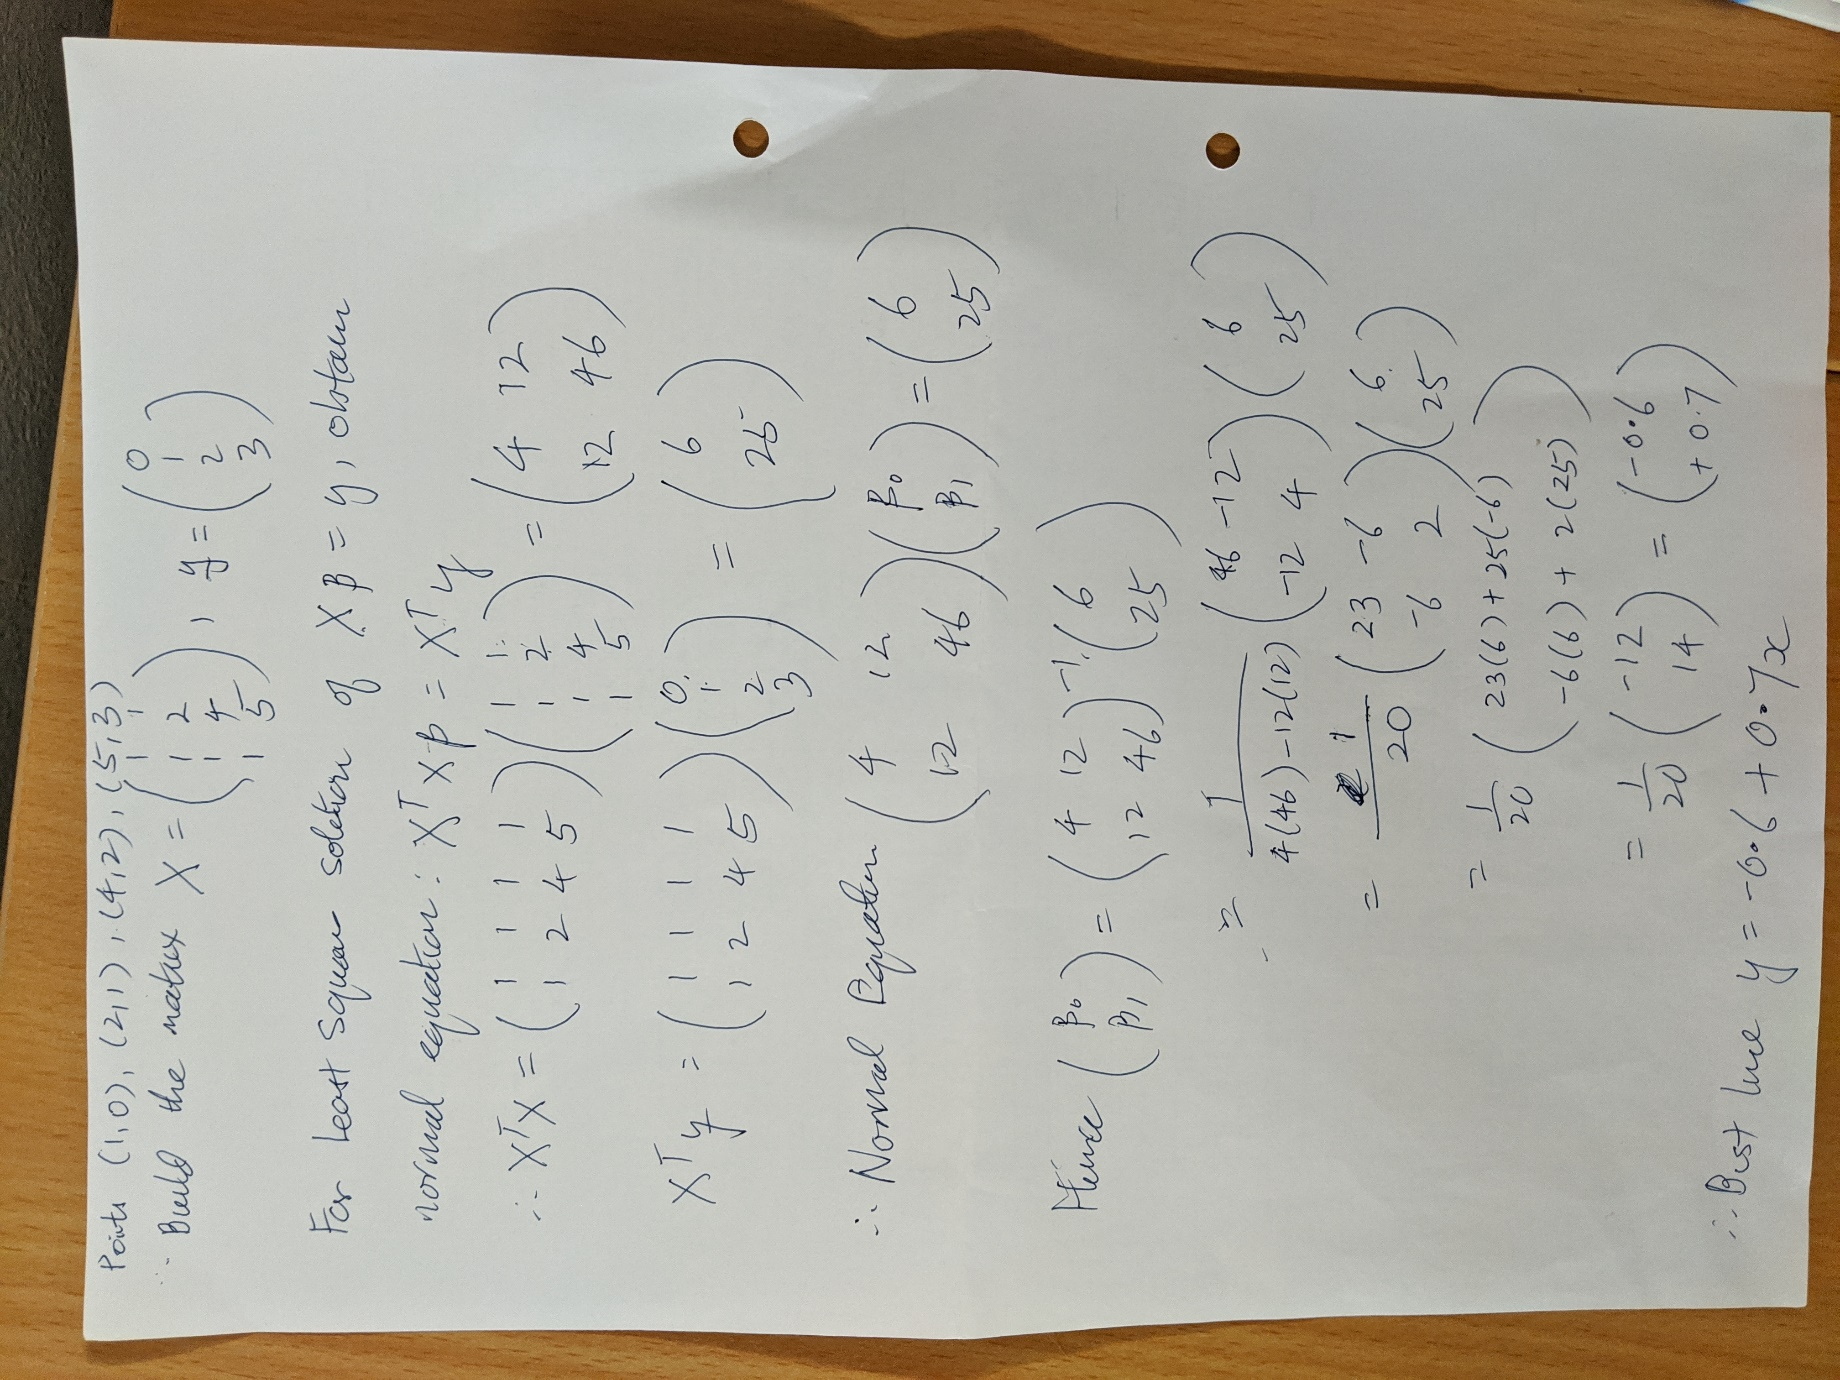 Points (1,0), (2,1), (4,2), (5,3)
∴ Build the matrix X = (1 1; 1 2; 1 4; 1 5), y = (0; 1; 2; 3)
For Least Square solution of Xβ = y, obtain
normal equation: XᵀXβ = Xᵀy
∴ XᵀX = (1 1 1 1; 1 2 4 5)(1 1; 1 2; 1 4; 1 5) = (4 12; 12 46)
Xᵀy = (1 1 1 1; 1 2 4 5)(0; 1; 2; 3) = (6; 25)
∴ Normal Equation (4 12; 12 46)(β₀; β₁) = (6; 25)
Hence (β₀; β₁) = (4 12; 12 46)⁻¹(6; 25)
= 1/(4(46)-12(12)) (46 -12; -12 4)(6; 25)
= 1/20 (23 -6; -6 2)(6; 25)
= 1/20 (23(6)+25(-6); -6(6)+2(25))
= 1/20 (-12; 14) = (-0.6; +0.7)
∴ Best line y = -0.6 + 0.7x